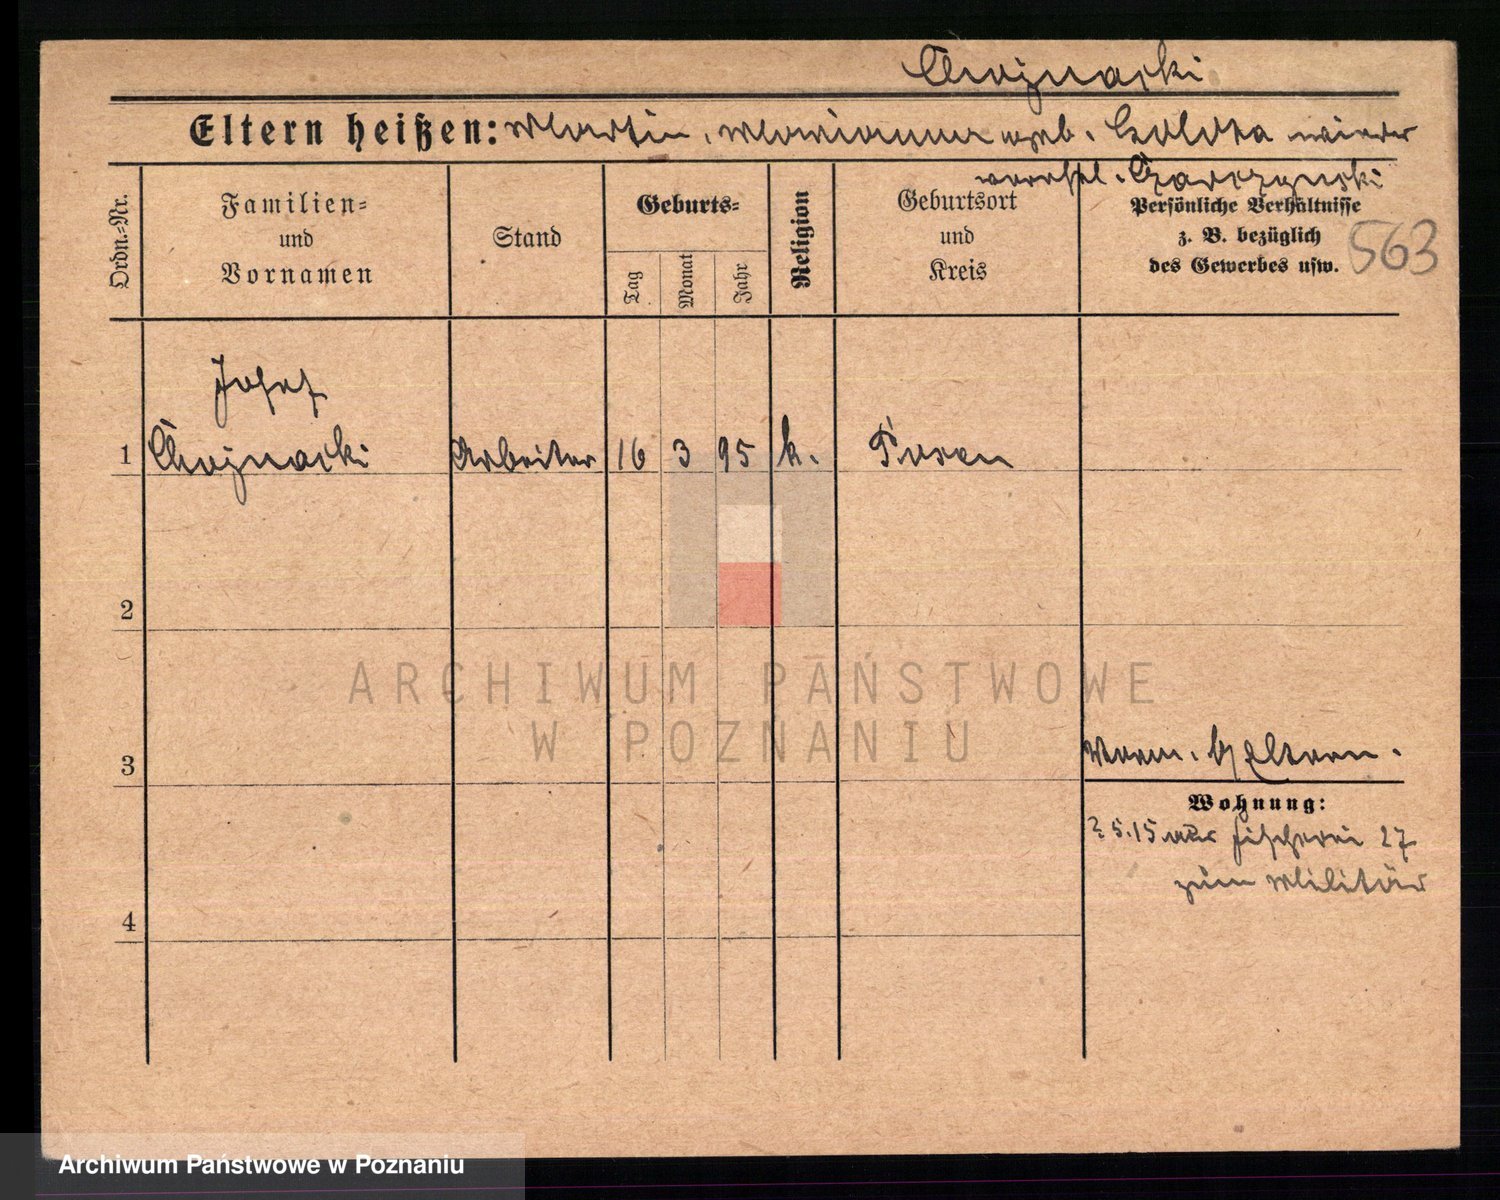 Chojnacki
Eltern heißen: Martin, Marianna geb. wieder
verehel. Garczynski
Ordn.-Nr.
Familien-
und
Vornamen
Stand
Geburts-
Tag
Monat
Jahr
Religion
Geburtsort
und
Kreis
Persönliche Verhältnisse
z. B. bezüglich
des Gewerbes usw.
563
Josef
1 Chojnacki Arbeiter 16 3 95 k. Posen
2
ARCHIWUM PAŃSTWOWE
W POZNANIU
3
Verm. Eltern.
Wohnung:
5.15 Fischerei 27
zum Militär
4
Archiwum Państwowe w Poznaniu